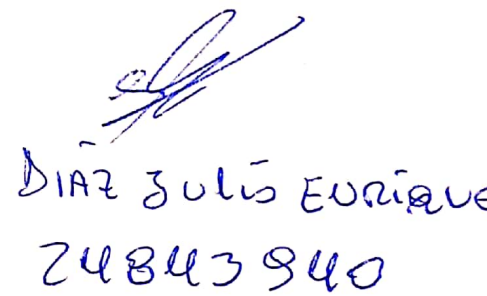 DIAZ JULIO ENRIQUE
24843940